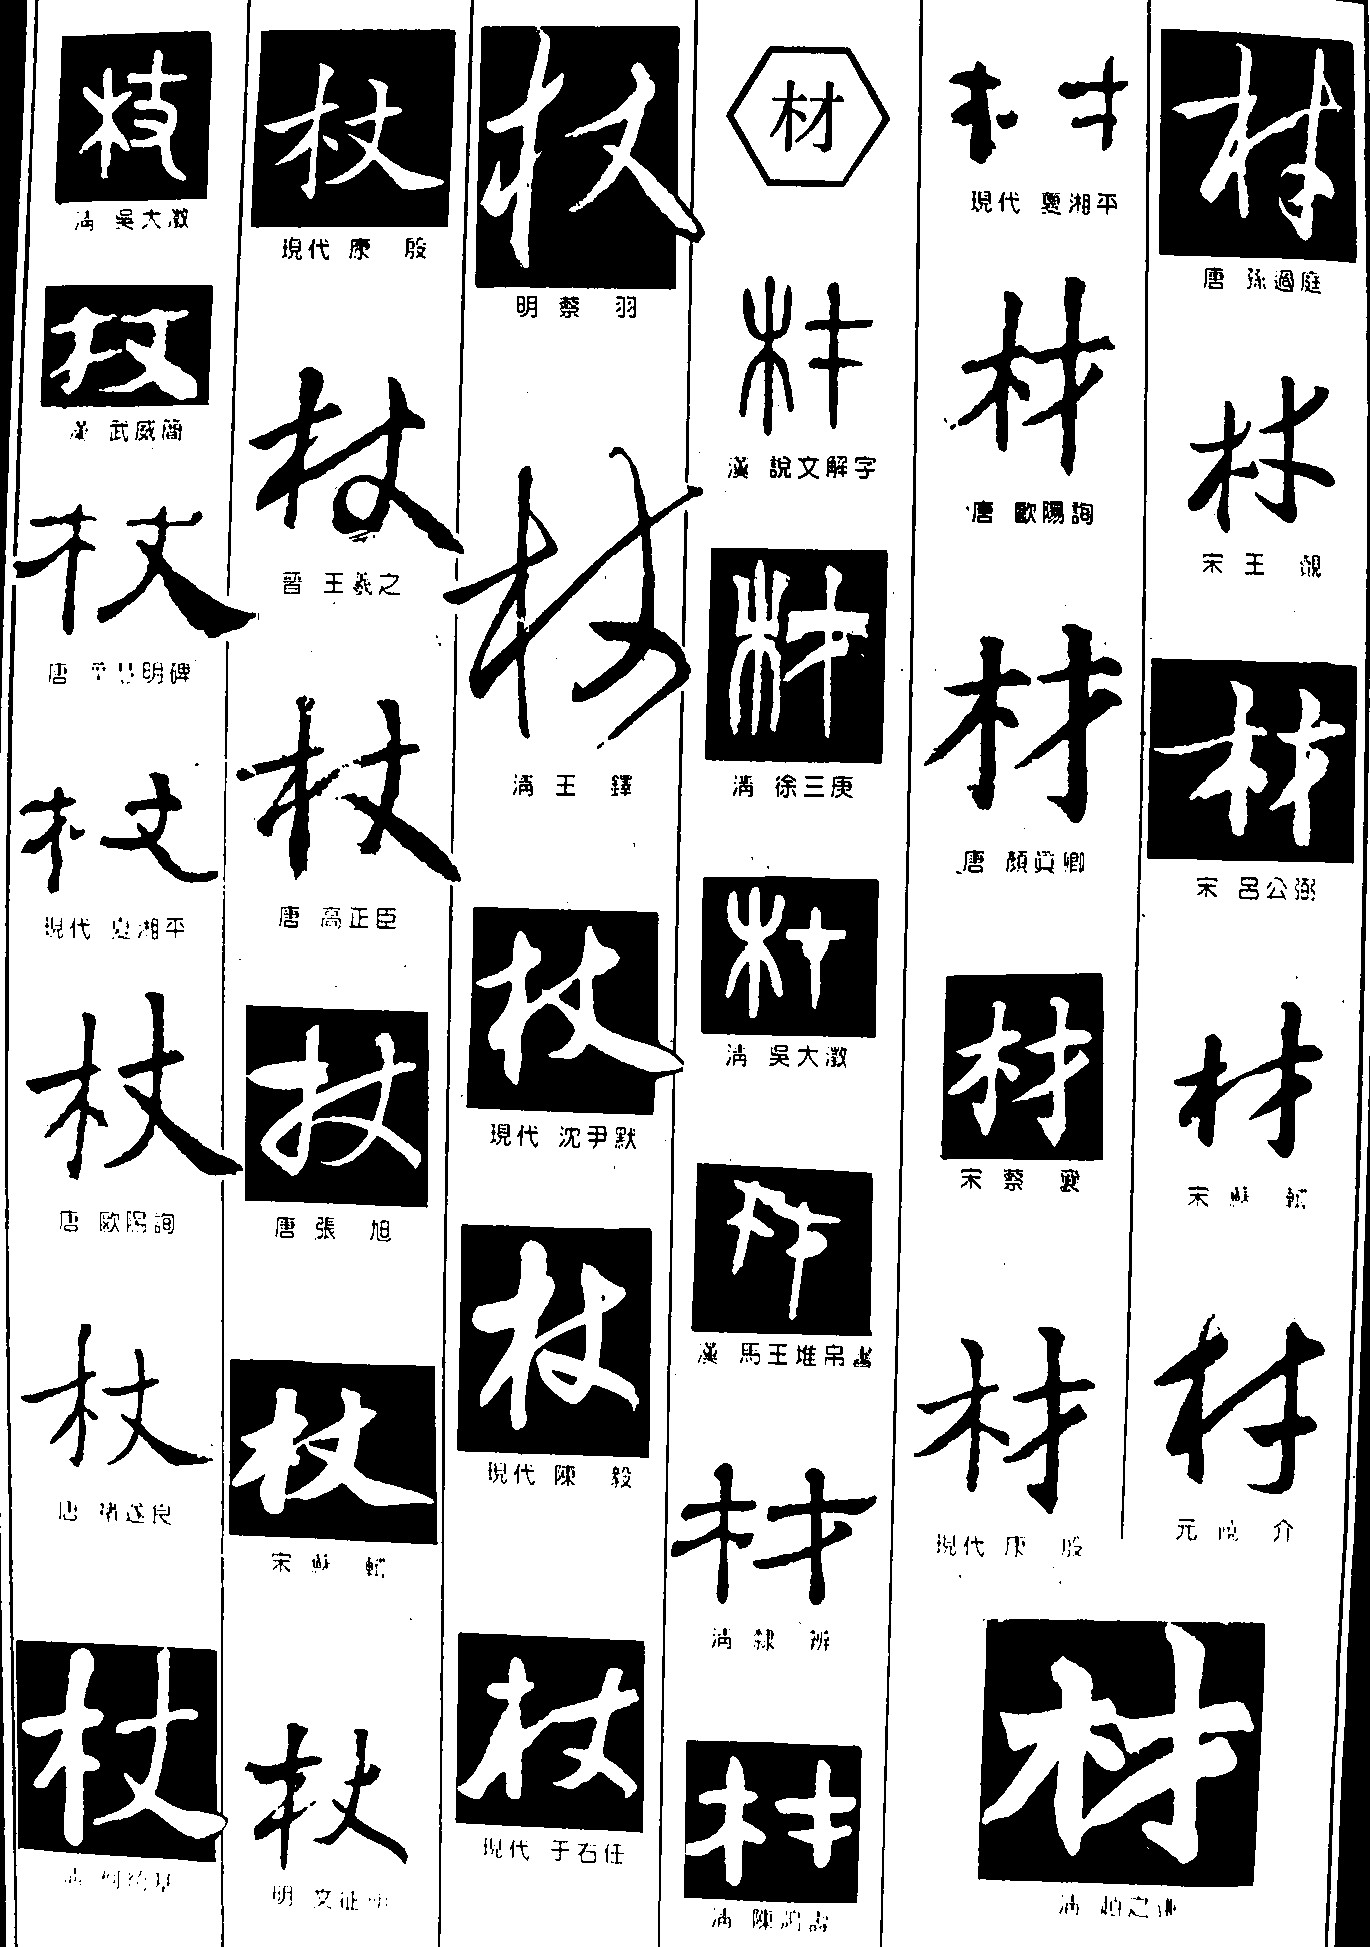 杖
清 吳大澂
杖
漢 武威簡
杖
唐 明碑
杖
現代 夏湘平
杖
唐 歐陽詢
杖
唐 褚遂良
杖
清 何紹基
杖
現代 康 殷
杖
晉 王羲之
杖
唐 高正臣
杖
唐 張 旭
杖
宋 蘇 軾
杖
明 文征明
杖
明 蔡 羽
杖
清 王 鐸
杖
現代 沈尹默
杖
現代 陳 毅
杖
現代 于右任
材
材
漢 說文解字
材
清 徐三庚
材
清 吳大澂
材
漢 馬王堆帛書
材
清 隸 辨
材
清 陳鴻壽
材
現代 夏湘平
材
唐 歐陽詢
材
唐 顏眞卿
材
宋 蔡 襄
材
現代 康 殷
材
唐 孫過庭
材
宋 王 覿
材
宋 呂公弼
材
宋 蘇 軾
材
元 介
材
清 趙之謙